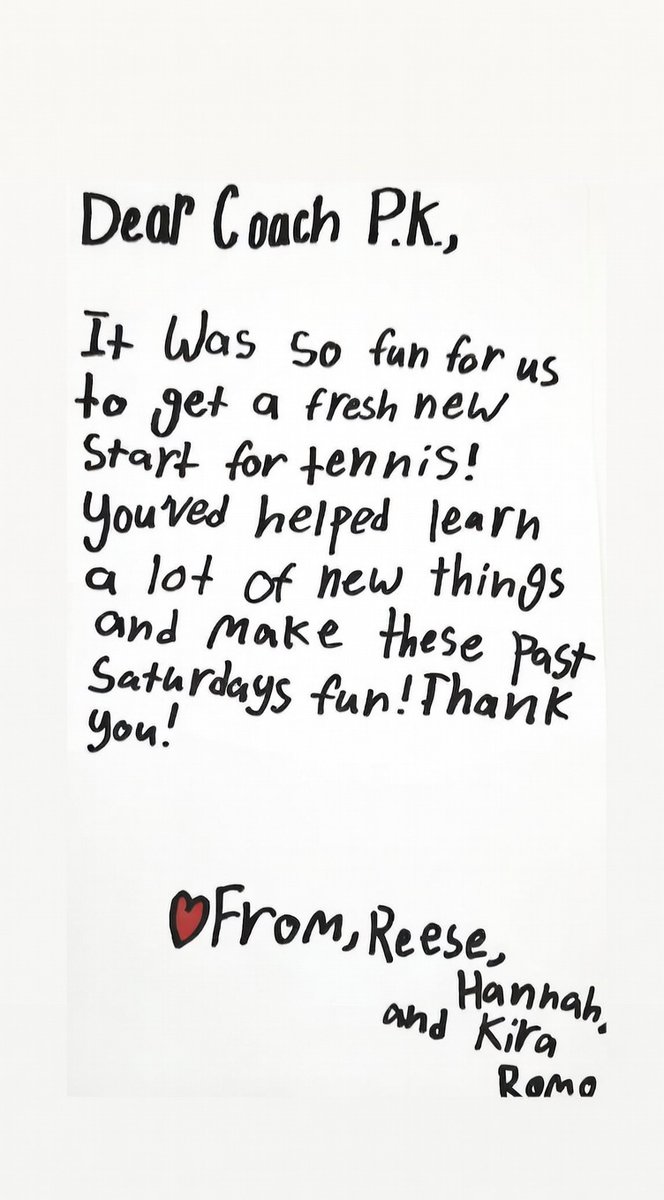 Dear Coach P.K.,
It was so fun for us
to get a fresh new
start for tennis!
You'ved helped learn
a lot of new things
and make these past
Saturdays fun! Thank
you!
From, Reese,
Hannah,
and Kira
Romo